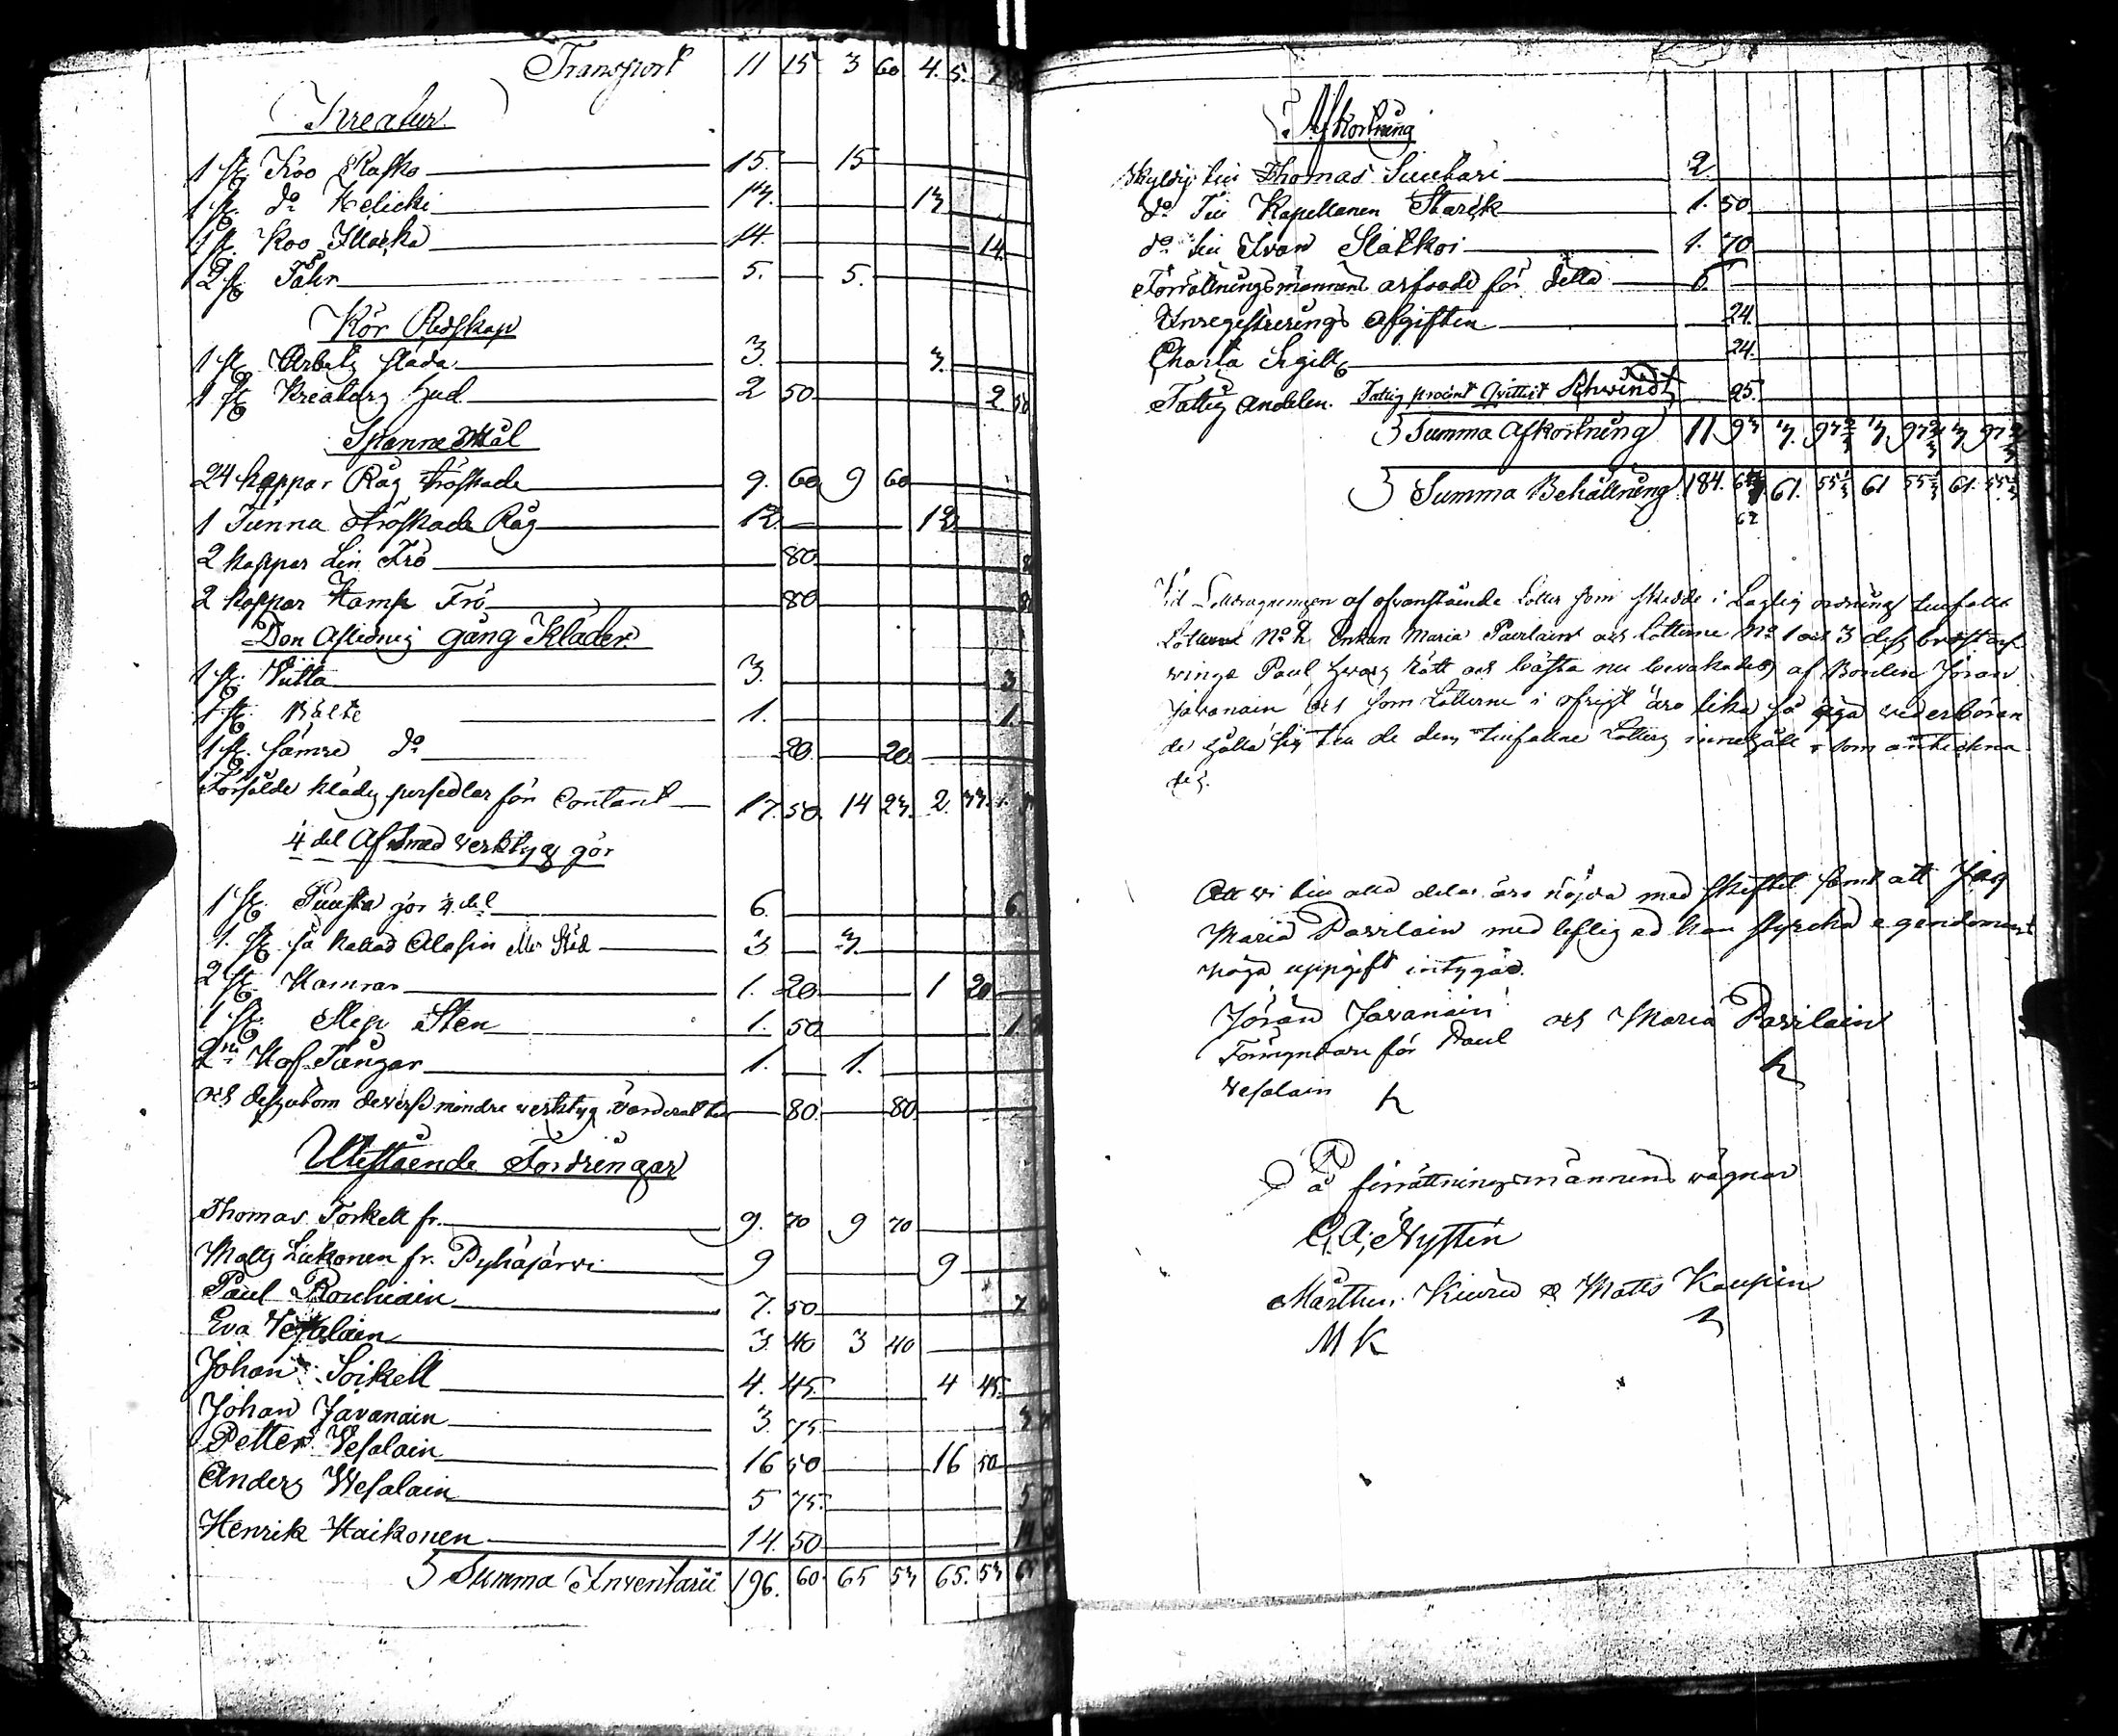 Transport 11 15 3 60 4. 5.
Kreatur
1 st. Koo Rasko 15. 15
1 st. do Helicki 13. 13
1 st. Koo Illocka 14. 14.
2 st. Fåhr 5. 5.
Kör Redskap
1 st. Arbets släda 3. 3.
1 st. Kreaturs hud 2 50 2. 50
Spannemål
24 kappar Råg tröskade 9. 60 9 60
1 Tunna otröskade Råg 12. 12.
2 kappar Lin Frö 80
2 kappar Hamp Frö 80
Den Aflednis Gång Kläder
1 st. 3. 3
1 st. Bälte 1. 1.
1 st. sämre do 20. 20.
Försålde kläds persedlar för Contant 17. 50. 14 23. 2. 33.
4 del Af Smed verktyg gör
1 st. gör 4 del 6. 6.
1. st. så kallad Alasin eller Städ 3 3.
2 st. Hamrar 1. 20 1 20
1 st. Slip Sten 1. 50 1.
2 Hof Tänger 1. 1.
och dessutom diverse mindre verktyg värderat till 80. 80
Utestående Fordringar
Thomas Torkell fr. 9. 70 9 70
Matts Liikonen fr. Pyhäjärvi 9 9
Paul Rouhiain 7. 50 7
Eva Vesalain 3. 40 3 40
Johan Soikell 4. 45. 4 45.
Johan Javanain 3. 75. 3
Petter Vesalain 16 50 16 50
Anders Wesalain 5 75. 5
Henrik Haikonen 14. 50
Summa Inventarii 196. 60. 65 53 65. 53 65
Afkortning
Skyldig till Thomas Suutari 2.
do Till Kapellanen Starck 1. 50
do till Ivan Slatkoi 1. 70
Förrättningsmännens arfvode för detta 6.
Inregistrerings afgiften 24.
Charta Sigill 24.
Fattig Andelen. Fattig procent Qvitterit Schvindt 25.
Summa Afkortning 11 93 3. 97 2/3 3. 97 2/3 3. 97 2/3
Summa Behållning 184. 67 61. 55 1/3 61 55 1/3 61. 55 1/3
67
Vid Lottdragningen af ofvanstående Lotter som skedde i Laglig ordning tillföll
Lotten No 2 Enkan Maria Pavilain och Lotterne No 1 och 3 dess bröst arf
vinge Paul hvars rätt och bästa nu bevakades af Bonden Jöran
Javanain och som Lotterne i öfrigt äro lika så äga vederböran
de hålla sig till de dem tillfallne Lotters innehåll som anteckna
des.
Att vi till alla delar äro nöjda med skiftet samt att Jag
Maria Pavilain med liflig ed kan styrcka egendomens
noga uppgift intygas.
Jöran Javanain och Maria Pavilain
Förmyndare för Paul
Vesalain
På förrättningsmännens vägnar
C. A. Nystén
Mårthen Kiuru & Matts Kaupin
M K